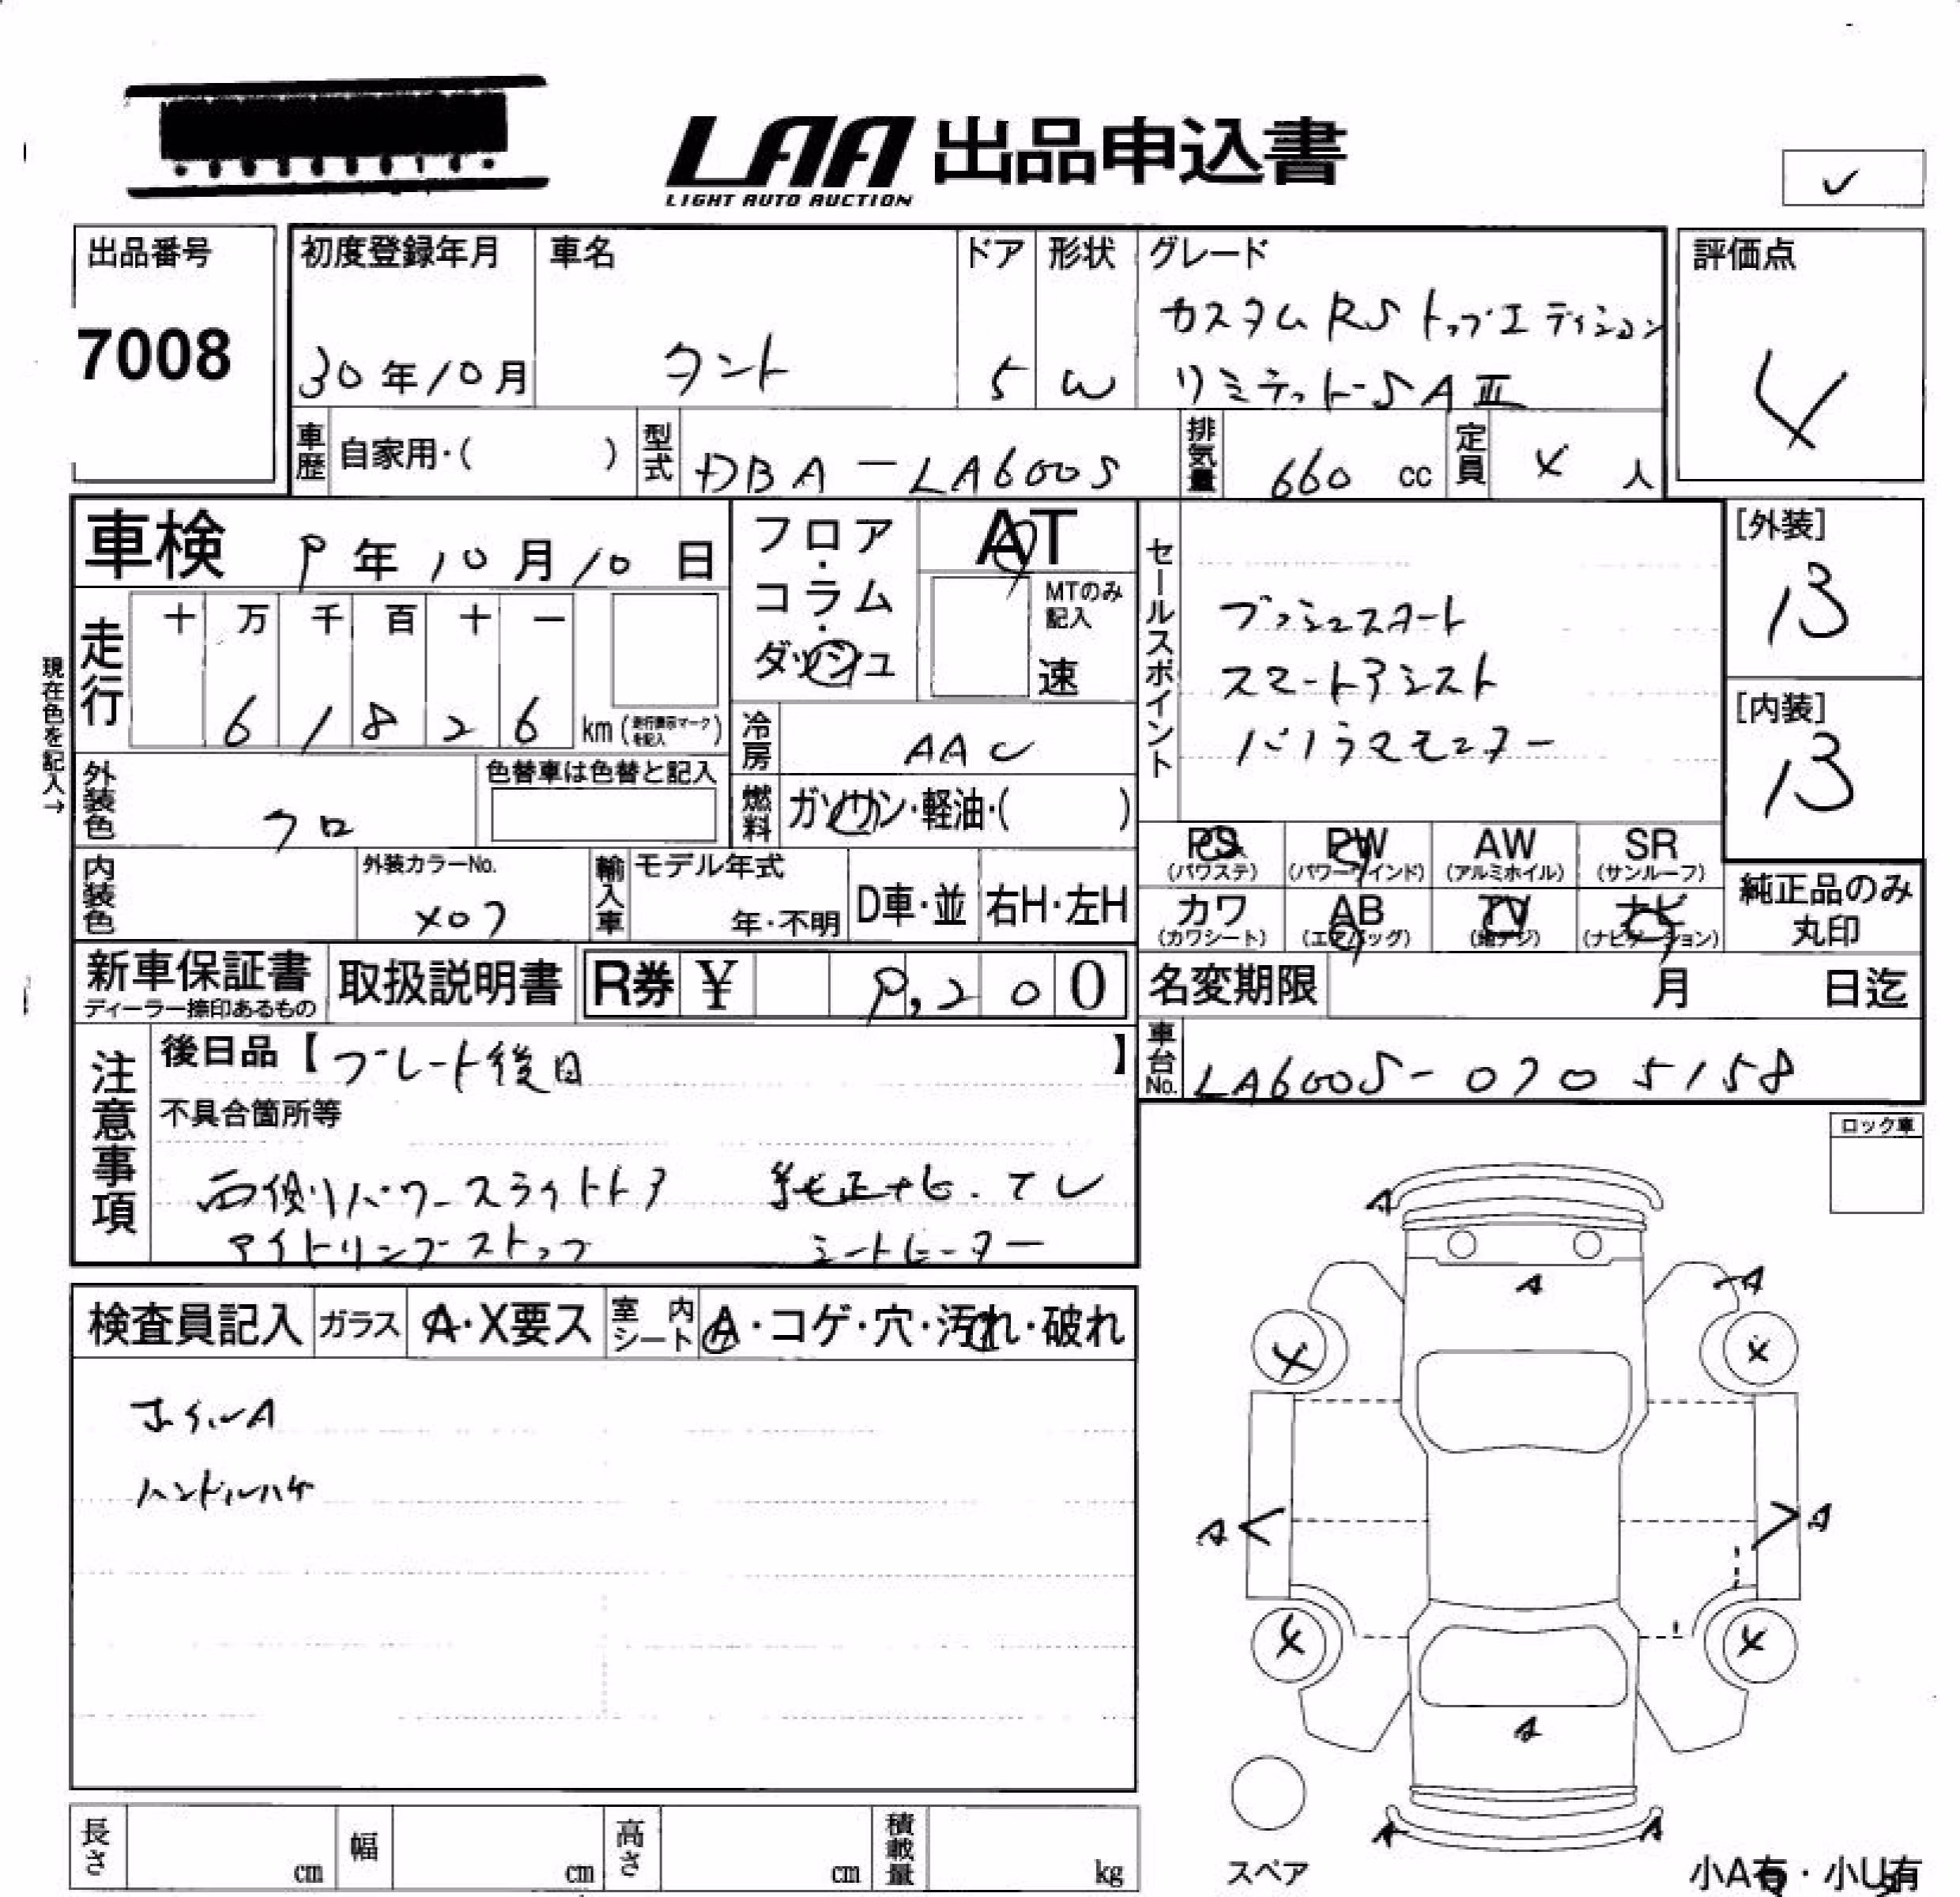 LAA 出品申込書
LIGHT AUTO AUCTION
✓
出品番号
7008
初度登録年月
30年10月
車名
タント
ドア
5
形状
W
グレード
カスタムRSトップエディション
リミテットSAⅢ
評価点
4
車歴 自家用・( )
型式 DBA-LA600S
排気量 660 cc
定員 4 人
車検 9年10月10日
フロア・コラム・ダッシュ
AT
MTのみ記入
速
セールスポイント
プッシュスタート
スマートアシスト
パノラマモニター
[外装]
B
[内装]
B
現在色を記入→
走行
十 万 千 百 十 一
6 1 8 2 6 km (走行表示マークを記入)
冷房 AAC
外装色 クロ
色替車は色替と記入
燃料 ガソリン・軽油・( )
PS (パワステ)
PW (パワーウインド)
AW (アルミホイル)
SR (サンルーフ)
内装色
外装カラーNo.
X07
輸入車
モデル年式
年・不明
D車・並
右H・左H
カワ (カワシート)
AB (エアバッグ)
TV (地デジ)
ナビ (ナビゲーション)
純正品のみ丸印
新車保証書
ディーラー捺印あるもの
取扱説明書
R券 ¥ 9,200
名変期限 月 日迄
注意事項
後日品【プレート後日】
車台No. LA600S-0705158
不具合箇所等
両側パワースライドトア 純正ナビ.テレ
アイドリングストップ シートヒーター
ロック車
検査員記入
ガラス A・X要ス
室内シート A・コゲ・穴・汚れ・破れ
ホイルA
ハンドルハゲ
A
A
A
4 4
A A
4 4
A
A A
スペア
長さ cm
幅 cm
高さ cm
積載量 kg
小A有・小U有